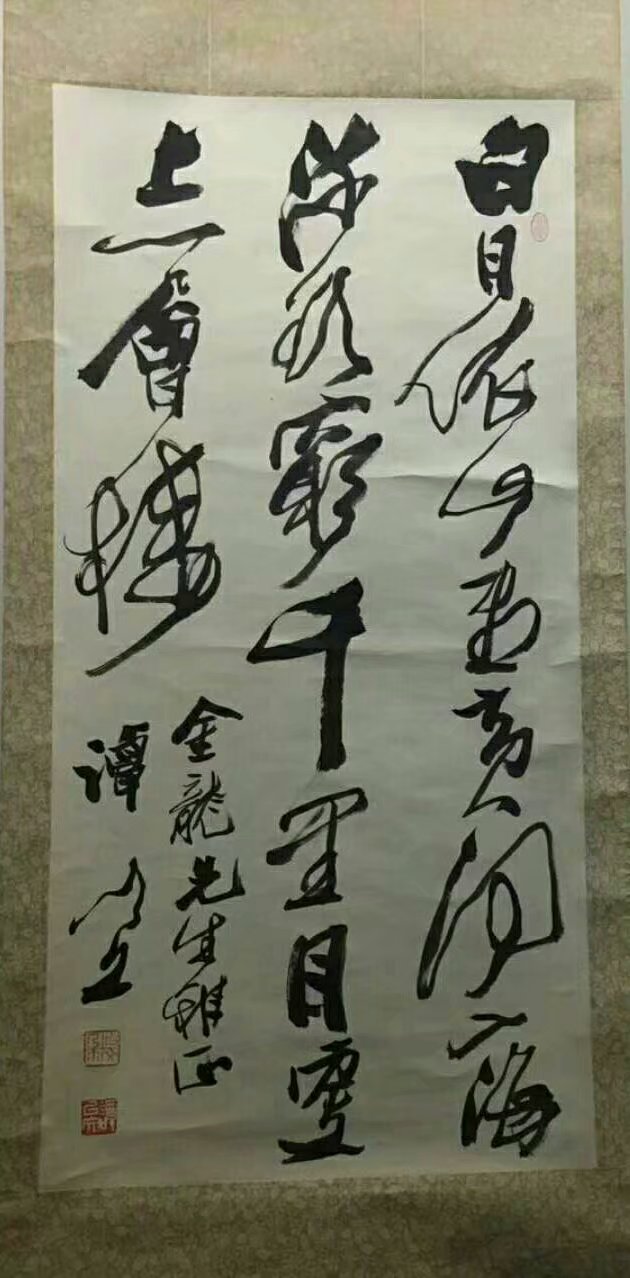 白日依山盡黃河入海
流欲窮千里目更
上一層樓
金龍先生雅正
譚